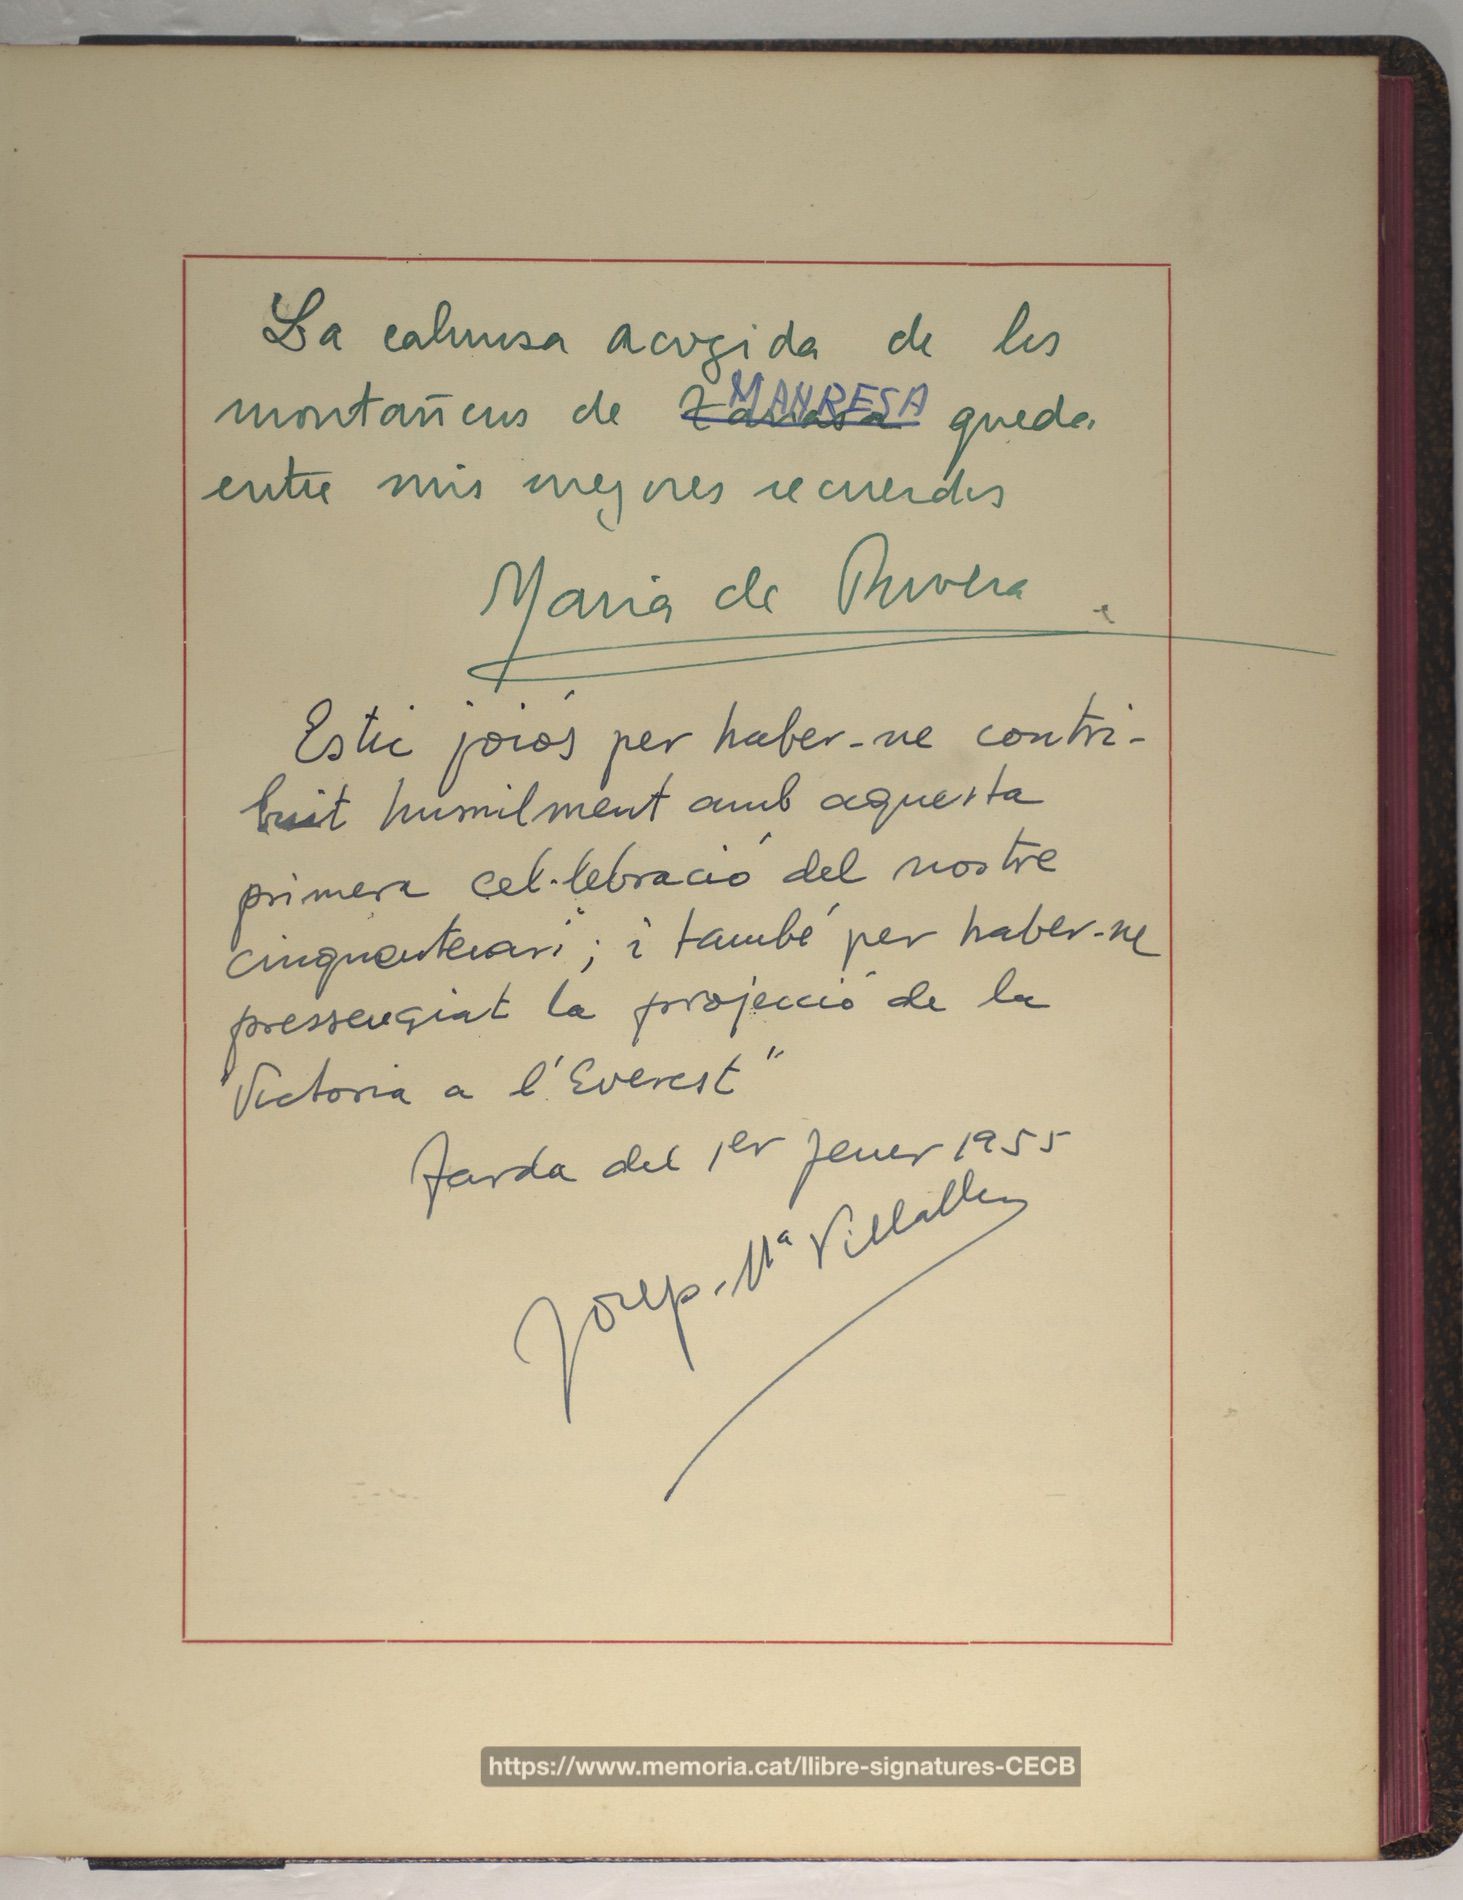 La calurosa acogida de los
montañeros de Tarrasa MANRESA queda
entre mis mejores recuerdos
Maria de Rivera
Estic joiós per haber-ne contri-
buit humilment amb aquesta
primera cel·lebració del nostre
cinquantenari"; i també per haber-ne
pressengiat la projecció de la
"Victoria a l'Everest"
Tarda del 1er Jener 1955
Josep-Mª
https://www.memoria.cat/llibre-signatures-CECB